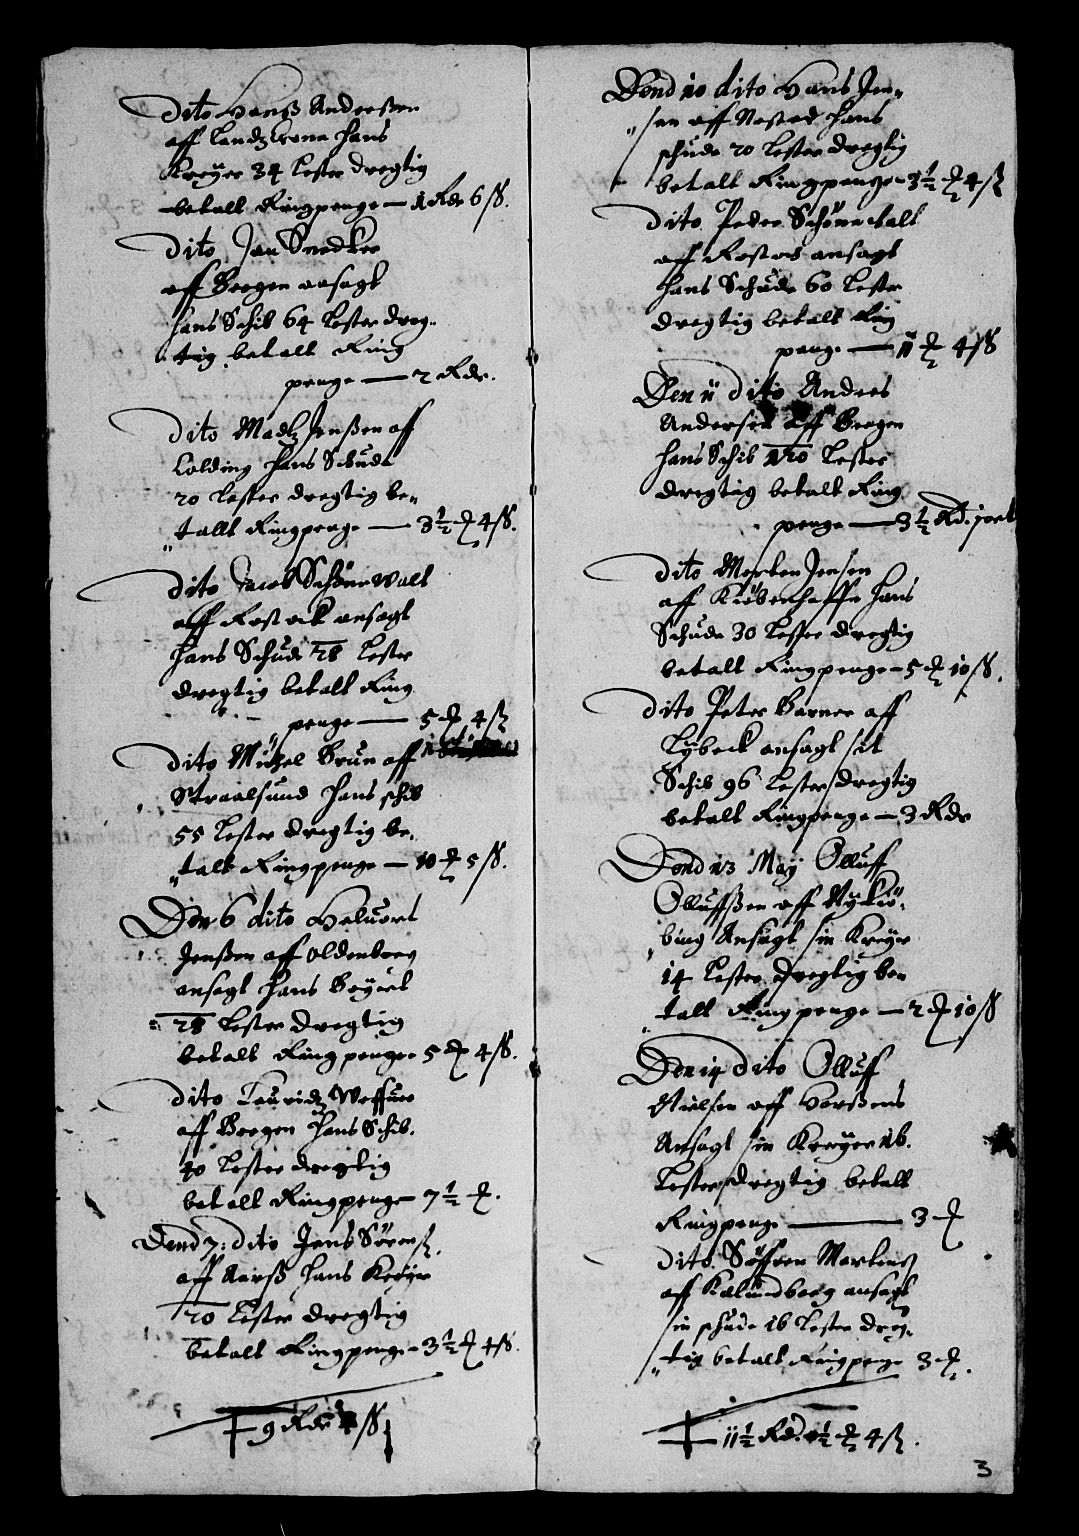 Dito Hanß Anderßen
aff Landzkrona hans
Kreyer 34 Lester dregtig
betalt Ringpenge — 1 Rdr 6 ß.
Dito Jan Snedker
aff Bergen ansagt
hans Schib 64 Lester dreg-
tig betalt Ring
penge — 2 Rdr.
Dito Madtz Jenßen aff
Colding hans Schude
20 Lester dregtig be-
talt Ringpenge — 3½ 4 ß.
Dito Jacob Schönnwalt
aff Rostock ansagt
hans Schude 28 Lester
dregtig betalt Ring
penge — 5 4 ß
Dito Michel Brun aff
Straalsund hans schib
55 Lester dregtig be-
talt Ringpenge — 10 5 ß.
Den 6 dito Heluort
Jenßen aff Oldenborg
ansagt hans Boyert
28 Lester dregtig
betalt Ringpenge 5 4 ß.
Dito Lauridz
aff Bergen hans Schib.
40 Lester dregtig
betalt Ringpenge 7½
Dend 7: dito Jens Sörenß.
aff Aarß hans Kreyer
20 Lester dregtig
betalt Ringpenge - 3½ 4 ß.
9 Rdr ß
Dend 10 dito Hans Jen-
sen aff Nested hans
schude 20 Lester dregtig
betalt Ringpenge - 3½ 4 ß
Dito Peder Schönnwalt
aff Rostock ansagt
hans Schude 60 Lester
dregtig betalt Ring
penge — 11 4 ß
Den 11 dito Anders
Andersen aff Bergen
hans Schib 120 Lester
dregtig betalt Ring
penge — 3½ Rd.
Dito Morten Jensen
aff Kiöbenhaffn hans
Schude 30 Lester dregtig
betalt Ringpenge - 5 10 ß.
Dito Peter Barner aff
Lybeck ansagt sit
Schib 96 Lester dregtig
betalt Ringpenge — 3 Rdr
Dend 13 Maij Olluff
Olluffßen aff Nykiö-
bing Ansagt sin Kreyer
14 Lester dregtig be-
talt Ringpenge — 2 10 ß
Den 14 dito Olluf
Nielsen aff Horßens
Ansagt sin Kreyer 16.
Lester dregtig betalt
Ringpenge — 3
Dito Söffren Mortenß
aff Kalundborg ansagt
sin schude 16 Lester dreg-
tig betalt Ringpenge 3
11½ Rd. ½ 4 ß.
3